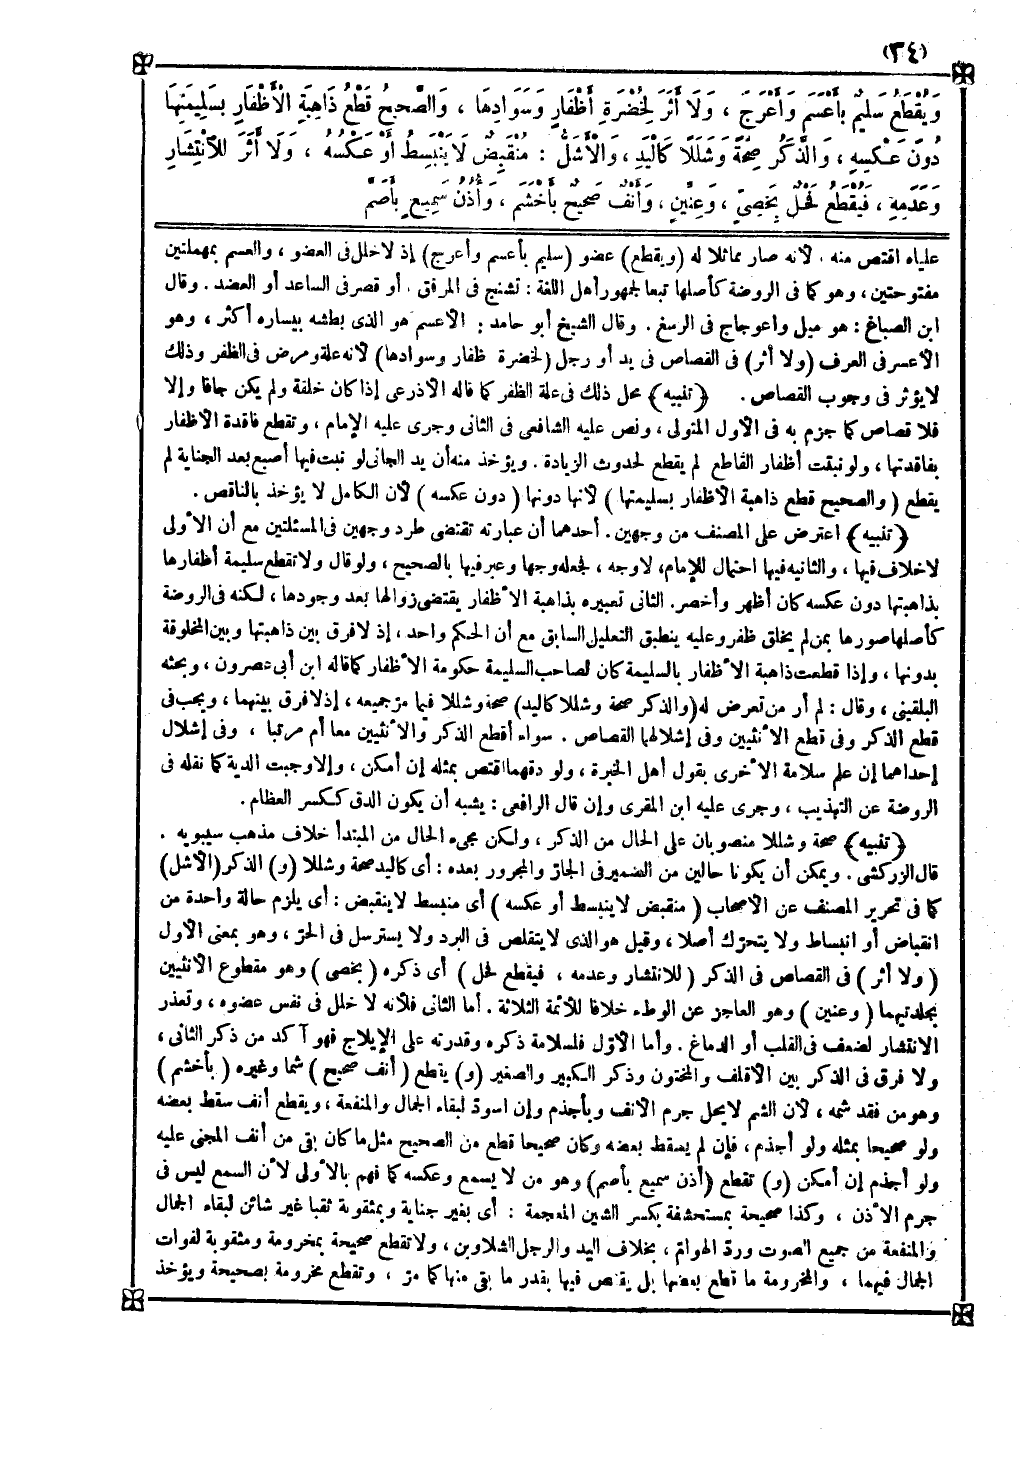 (٣٤)
وَيُقْطَعُ سَلِيمٌ بِأَعْسَمَ وَأَعْرَجَ ، وَلَا أَثَرَ لِخُضْرَةِ أَظْفَارٍ وَسَوَادِهَا ، وَالصَّحِيحُ قَطْعُ ذَاهِبَةِ الْأَظْفَارِ بِسَلِيمَتِهَا
دُونَ عَكْسِهِ ، وَالذَّكَرُ صِحَّةً وَشَلَلًا كَالْيَدِ ، وَالْأَشَلُّ : مُنْقَبِضٌ لَا يَنْبَسِطُ أَوْ عَكْسُهُ ، وَلَا أَثَرَ لِلاِنْتِشَارِ
وَعَدَمِهِ ، فَيُقْطَعُ فَحْلٌ بِخَصِيٍّ ، وَعِنِّينٍ ، وَأَنْفٌ صَحِيحٌ بِأَخْشَمَ ، وَأُذُنُ سَمِيعٍ بِأَصَمَّ
علياه اقتص منه . لأنه صار مماثلا له (ويقطع) عضو (سليم بأعسم وأعرج) إذ لاخلل فى العضو ، والعسم بمهملتين
مفتوحتين ، وهو كما فى الروضة كأصلها تبعا لجمهور أهل اللغة : تشنج فى المرفق . أو قصر فى الساعد أو العضد . وقال
ابن الصباغ : هو ميل واعوجاج فى الرسغ . وقال الشيخ أبو حامد : الأعسم هو الذى بطشه بيساره أكثر ، وهو
الأعسر فى العرف (ولا أثر) فى القصاص فى يد أو رجل (لخضرة ظفار وسوادها) لأنه علة ومرض فى الظفر وذلك
لا يؤثر فى وجوب القصاص . ﴿تنبيه﴾ محل ذلك فى علة الظفر كما قاله الأذرعى إذا كان خلقة ولم يكن جافا وإلا
فلا قصاص كما جزم به فى الأول المتولى ، ونص عليه الشافعى فى الثانى وجرى عليه الإمام ، وتقطع فاقدة الأظفار
بفاقدتها ، ولو نبتت أظفار القاطع لم يقطع لحدوث الزيادة . ويؤخذ منه أن يد الجانى لو نبت فيها أصبع بعد الجناية لم
يقطع ( والصحيح قطع ذاهبة الأظفار بسليمتها ) لأنها دونها ( دون عكسه ) لأن الكامل لا يؤخذ بالناقص .
﴿تنبيه﴾ اعترض على المصنف من وجهين . أحدهما أن عبارته تقتضى طرد وجهين فى المسئلتين مع أن الأولى
لاخلاف فيها ، والثانيه فيها احتمال للإمام، لاوجه ، فجعله وجها وعبر فيها بالصحيح ، ولو قال ولا تقطع سليمة أظفارها
بذاهبتها دون عكسه كان أظهر وأخصر. الثانى تعبيره بذاهبة الأظفار يقتضى زوالها بعد وجودها ، لكنه فى الروضة
كأصلها صورها بمن لم يخلق ظفر وعليه ينطبق التعليل السابق مع أن الحكم واحد ، إذ لا فرق بين ذاهبتها وبين المخلوقة
بدونها ، وإذا قطعت ذاهبة الأظفار بالسليمة كان لصاحب السليمة حكومة الأظفار كما قاله ابن أبى عصرون ، وبحثه
البلقينى ، وقال : لم أر من تعرض له (والذكر صحة وشللا كاليد) صحة وشللا فيما مر جميعه ، إذ لا فرق بينهما ، ويجب فى
قطع الذكر وفى قطع الأنثيين وفى إشلالهما القصاص . سواء أقطع الذكر والأنثيين معا أم مرتبا ، وفى إشلال
إحداهما إن علم سلامة الأخرى بقول أهل الخبرة ، ولو دقهما اقتص بمثله إن أمكن ، وإلا وجبت الدية كما نقله فى
الروضة عن التهذيب ، وجرى عليه ابن المقرى وإن قال الرافعى : يشبه أن يكون الدق ككسر العظام .
﴿تنبيه﴾ صحة وشللا منصوبان على الحال من الذكر ، ولكن مجىء الحال من المبتدأ خلاف مذهب سيبويه .
قال الزركشى . ويمكن أن يكونا حالين من الضمير فى الجار والمجرور بعده : أى كاليد صحة وشللا (و) الذكر (الأشل)
كما فى تحرير المصنف عن الأصحاب ( منقبض لا ينبسط أو عكسه ) أى منبسط لا ينقبض : أى يلزم حالة واحدة من
انقباض أو انبساط ولا يتحرّك أصلا ، وقيل هو الذى لا يتقلص فى البرد ولا يسترسل فى الحرّ ، وهو بمعنى الأول
( ولا أثر ) فى القصاص فى الذكر ( للانتشار وعدمه ، فيقطع فحل ) أى ذكره ( بخصى ) وهو مقطوع الأنثيين
بجلدتيهما ( وعنين ) وهو العاجز عن الوطء خلافا للأئمة الثلاثة . أما الثانى فلأنه لا خلل فى نفس عضوه ، وتعذر
الانتشار لضعف فى القلب أو الدماغ . وأما الأوّل فلسلامة ذكره وقدرته على الإيلاج فهو آكد من ذكر الثانى ،
ولا فرق فى الذكر بين الأقلف والمختون وذكر الكبير والصغير (و) يقطع (أنف صحيح) شما وغيره ( بأخشم )
وهو من فقد شمه ، لأن الشم لا يحل جرم الأنف وبأجذم وإن اسودّ لبقاء الجمال والمنفعة ، ويقطع أنف سقط بعضه
ولو صحيحا بمثله ولو أجذم ، فإن لم يسقط بعضه وكان صحيحا قطع من الصحيح مثل ما كان بقى من أنف المجنى عليه
ولو أجذم إن أمكن (و) تقطع (أذن سميع بأصم) وهو من لا يسمع وعكسه كما فهم بالأولى لأن السمع ليس فى
جرم الأذن ، وكذا صحيحة بمستحشفة بكسر الشين المعجمة : أى بغير جناية وبمثقوبة ثقبا غير شائن لبقاء الجمال
والمنفعة من جميع الصوت وردّ الهوامّ ، بخلاف اليد والرجل الشلاوين ، ولا تقطع صحيحة بمخرومة ومثقوبة لفوات
الجمال فيهما ، والمخرومة ما قطع بعضها بل يقتص فيها بقدر ما بقى منها كما مرّ ، وتقطع مخرومة بصحيحة ويؤخذ